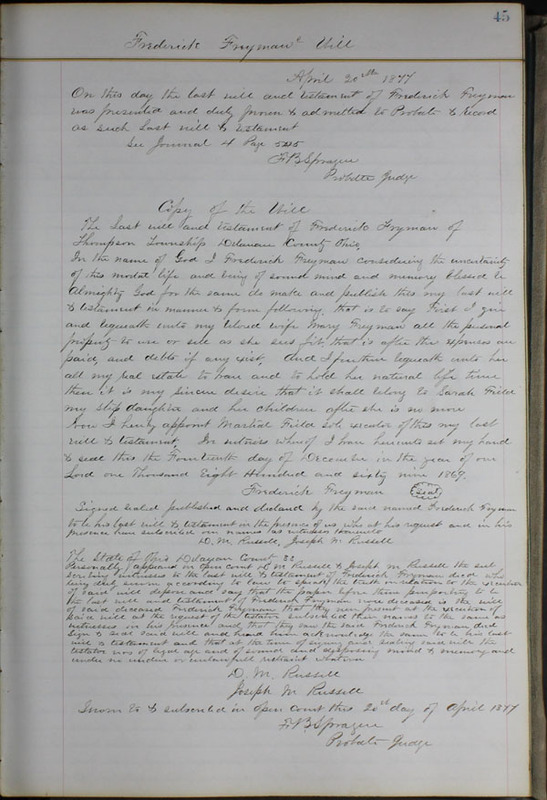 45
Frederick Freyman's Will
April 20th 1877
On this day the last will and testament of Frederick Freyman
was presented and duly proven & admitted to Probate & record
as such last will & testament
See Journal 4 Page 525
F. B. Sprague
Probate Judge
Copy of the Will
The last will and testament of Frederick Freyman of
Thompson Township Delaware County Ohio
In the name of God I Frederick Freyman considering the uncertainty
of this mortal life and being of sound mind and memory blessed be
Almighty God for the same do make and publish this my last will
& testament in manner & form following, that is to say First I give
and bequeath unto my beloved wife Mary Freyman all the personal
property to use or sell as she sees fit, that is after the expenses are
paid, and debts if any exist, And I further bequeath unto her
all my real estate to have and to hold her natural life time
then it is my sincere desire that it shall belong to Sarah Field
my step daughter and her children after she is no more
I hereby appoint Martial Field sole executor of this my last
will & testament, In witness whereof I have hereunto set my hand
& seal this the Fourteenth day of December in the year of our
Lord one Thousand Eight Hundred and sixty nine 1869.
Frederick Freyman (seal)
Signed sealed published and declared by the said named Frederick Freyman
to be his last will & testament in the presence of us who at his request and in his
presence have subscribed our names as witnesses hereunto
D. M. Russell, Joseph M. Russell
The State of Ohio Delaware County SS
Personally appeared in open court D M Russell & Joseph M Russell the sub
scribing witnesses to the last will & testament of Frederick Freyman decd who
being duly sworn according to law to speak the truth in relation to the execution
of said will depose and say that the paper before them purporting to be
the last will and testament of Frederick Freyman now deceased is the will
of said deceased Frederick Freyman that they were present at the execution of
said will at the request of the testator subscribed their names to the same as
witnesses in his presence and that they saw the said Frederick Freyman decd
sign & seal said will and heard him acknowledge the same to be his last
will & testament and that at the time of signing and sealing said will the
testator was of legal age and of sound and disposing mind & memory and
under no undue or unlawful restraint whatever
D. M. Russell
Joseph M Russell
Sworn to & subscribed in open court this 20th day of April 1877
F. B. Sprague
Probate Judge